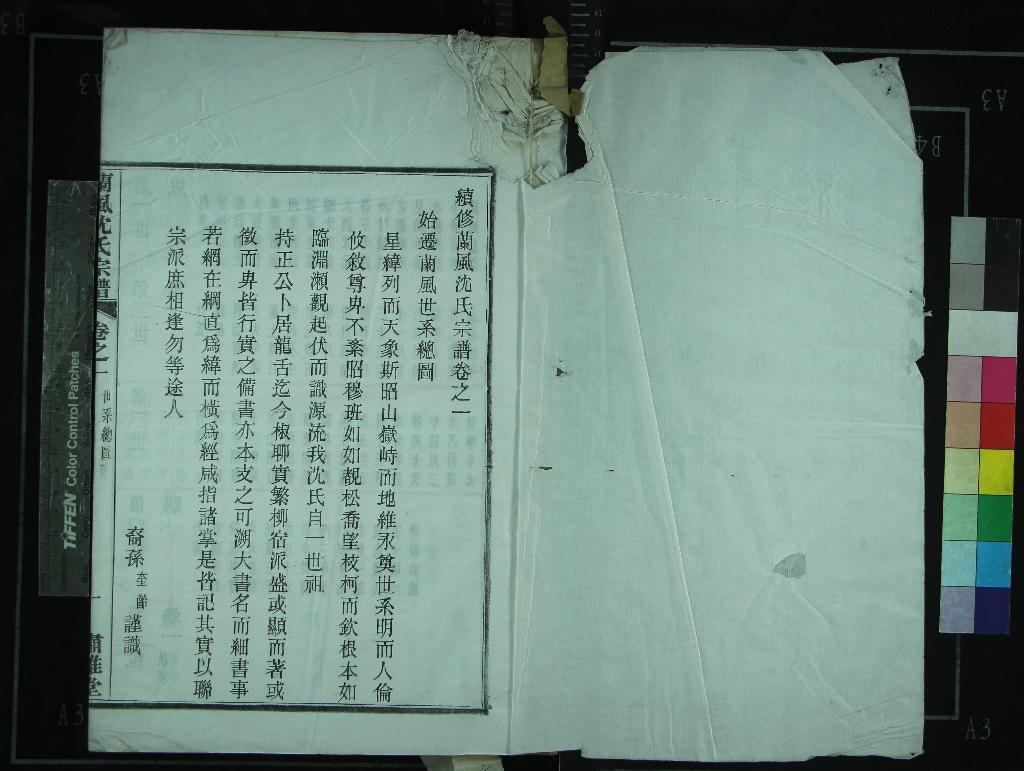 續修蘭風沈氏宗譜卷之一
始遷蘭風世系總圖
星緯列而天象斯昭山嶽峙而地維永奠世系明而人倫
攸敘尊卑不紊昭穆班如如覩松喬望枝柯而欽根本如
臨淵瀨觀起伏而識源流我沈氏自一世祖
持正公卜居龍舌迄今椒聊實繁柳宿派盛或顯而著或
微而卑皆行實之備書亦本支之可溯大書名而細書事
若網在綱直爲緯而橫爲經咸指諸掌是皆記其實以聯
宗派庶相逢勿等途人
裔孫 奎 齡 謹識
蘭風沈氏宗譜 卷之一 世系總圖 一 肅雝堂
TIFFEN Color Control Patches
A3
B4
A3
A3
A3
B3